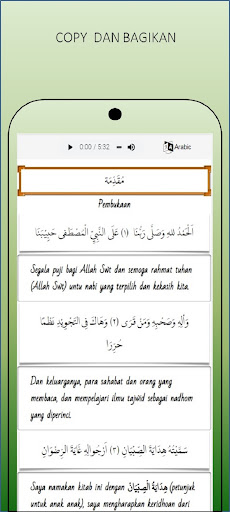 COPY DAN BAGIKAN
0:00 / 5:32
Arabic
مُقَدِّمَة
Pembukaan
اَلْحَمْدُ للهِ وَصَلَّى رَبُّنَا (١) عَلَى النَّبِيِّ الْمُصْطَفَى حَبِيْبِنَا
Segala puji bagi Allah Swt dan semoga rahmat tuhan
(Allah Swt) untu nabi yang terpilih dan kekasih kita.
وَآلِهِ وَصَحْبِهِ وَمَنْ قَرَى (٢) وَهَاكَ فِى التَّجْوِيْدِ نَظْمًا
حُرِّرَا
Dan keluarganya, para sahabat dan orang yang
membaca, dan mempelajari ilmu tajwid sebagai nadhom
yang diperinci.
سَمَّيْتُهُ هِدَايَةَ الصِّبْيَانِ (٣) أَرْجُوإلهِى غَايَةَ الرِّضْوَانِ
Saya namakan kitab ini dengan هِدَايَةَ الصِّبْيَانِ (petunjuk
untuk anak anak), saya mengharapkan keridhoan dari